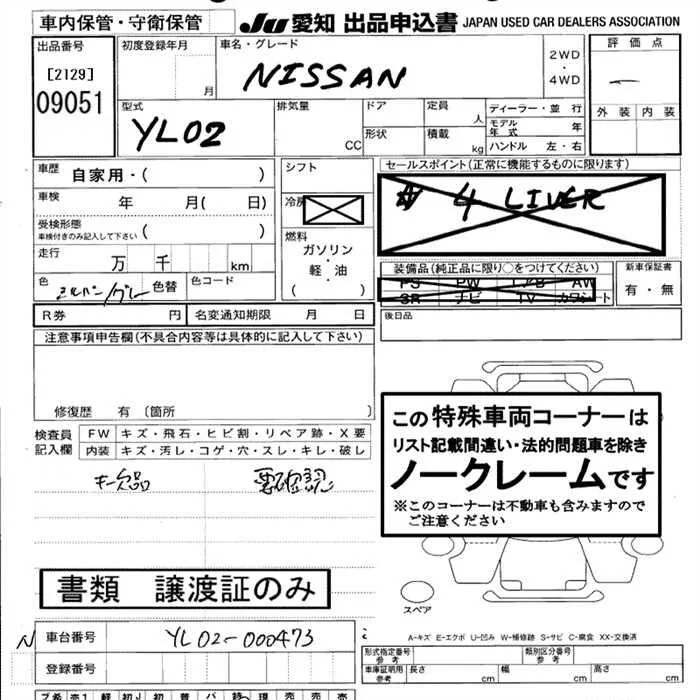 車内保管・守衛保管 JU 愛知 出品申込書 JAPAN USED CAR DEALERS ASSOCIATION
出品番号 初度登録年月 車名・グレード 評価点
[2129] 月 NISSAN 2WD・4WD
09051 型式 排気量 ドア 定員 人 ディーラー・並行 外装 内装
YL02 CC 形状 積載 kg モデル年式 年
ハンドル 左・右
車歴 自家用・( ) シフト セールスポイント(正常に機能するものに限ります)
車検 年 月( 日) 冷房 4 LIVER
受検形態 ( )
車検付きのみ記入して下さい 燃料
走行 万 千 km ガソリン・軽・油 ( )
装備品(純正品に限り○をつけてください) 新車保証書
色 シルバー/グレー 色替 色コード PS PW エアB AW 有・無
SR ナビ TV カワシート
R券 円 名変通知期限 月 日 後日品
注意事項申告欄(不具合内容等は具体的に記入して下さい)
修復歴 有 〔箇所 〕
検査員記入欄 FW キズ・飛石・ヒビ割・リペア跡・X要
内装 キズ・汚レ・コゲ・穴・スレ・キレ・破レ
キー欠品 要確認
この特殊車両コーナーは
リスト記載間違い・法的問題車を除き
ノークレームです
※このコーナーは不動車も含みますので
ご注意ください
書類 譲渡証のみ
スペア
N 車台番号 YL02-000473
A-キズ E-エクボ U-凹み W-補修跡 S-サビ C-腐食 XX-交換済
登録番号
形式指定番号 参考 類別区分番号 参考
車庫証明用 参考 長さ 幅 高さ
cm cm cm